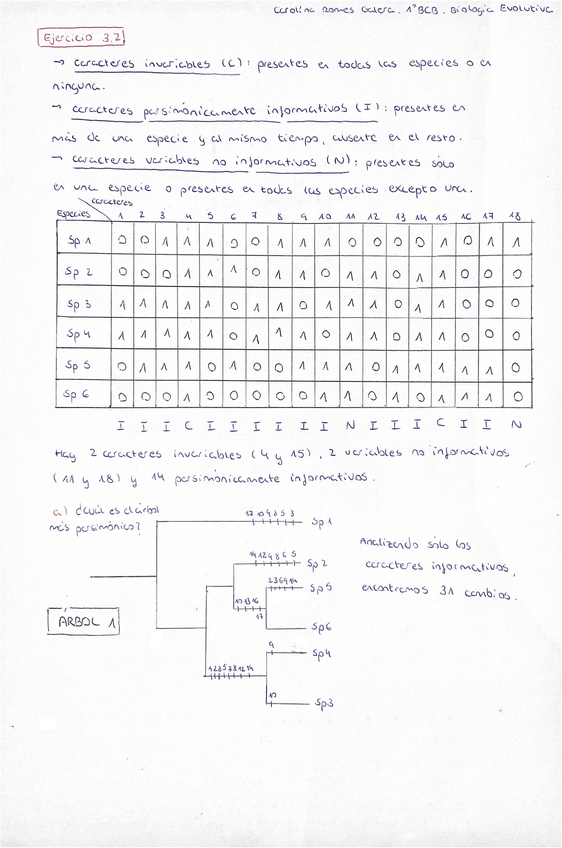 Carolina Romes Galera. 1º BCB. Biología Evolutiva
Ejercicio 3.2
→ caracteres invariables (C): presentes en todas las especies o en
ninguna.
→ caracteres parsimónicamente informativos (I): presentes en
más de una especie y al mismo tiempo, ausente en el resto.
→ caracteres variables no informativos (N): presentes sólo
en una especie o presentes en todas las especies excepto una.
caracteres
Especies 1 2 3 4 5 6 7 8 9 10 11 12 13 14 15 16 17 18
Sp 1 0 0 1 1 1 0 0 1 1 1 0 0 0 0 1 0 1 1
Sp 2 0 0 0 1 1 1 0 1 1 0 1 1 0 1 1 0 0 0
Sp 3 1 1 1 1 1 0 1 1 0 1 1 1 0 1 1 0 0 0
Sp 4 1 1 1 1 1 0 1 1 1 0 1 1 0 1 1 0 0 0
Sp 5 0 1 1 1 0 1 0 0 1 1 1 0 1 1 1 1 1 0
Sp 6 0 0 0 1 0 0 0 0 0 1 1 0 1 0 1 1 1 0
I I I C I I I I I I N I I I C I I N
Hay 2 caracteres invariables (4 y 15), 2 variables no informativos
(11 y 18) y 14 parsimónicamente informativos.
a) ¿cuál es el árbol
más parsimónico?
17 10 9 8 5 3 Sp 1
Analizando sólo los
caracteres informativos,
encontramos 31 cambios.
14 12 9 8 6 5 Sp 2
2 3 6 9 14 Sp5
10 13 16
17
Sp6
ÁRBOL 1
9 Sp4
1 2 3 5 7 8 12 14
10 Sp3